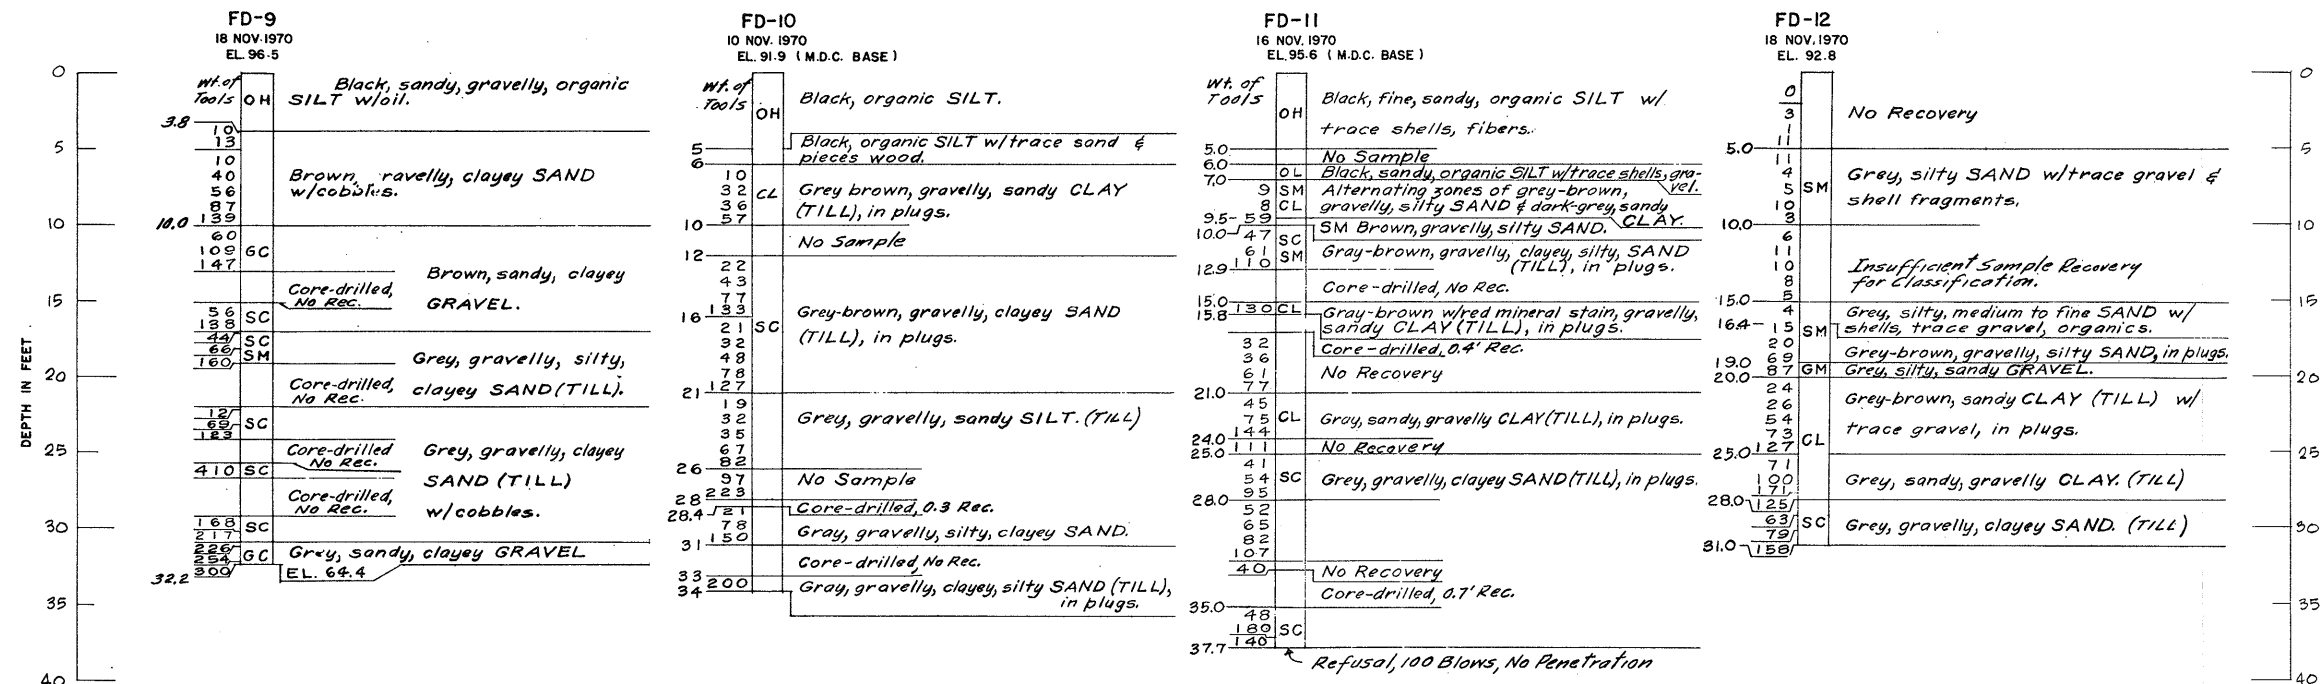 FD-9
18 NOV. 1970
EL. 96.5
Wt. of
Tools
OH
Black, sandy, gravelly, organic
SILT w/oil.
3.8
10
13
10
40
56
87
139
Brown, ravelly, clayey SAND
w/cobbles.
10.0
60
109 GC
147
Brown, sandy, clayey
GRAVEL.
Core-drilled,
No Rec.
56
138
SC
44
SC
66
SM
160
Grey, gravelly, silty,
clayey SAND (TILL).
Core-drilled,
No Rec.
12
69 SC
123
Core-drilled
No Rec.
Grey, gravelly, clayey
SAND (TILL)
w/cobbles.
410 SC
Core-drilled,
No Rec.
168 SC
217
226
254
GC
Grey, sandy, clayey GRAVEL
300
32.2
EL. 64.4
FD-10
10 NOV. 1970
EL. 91.9 (M.D.C. BASE)
Wt. of
Tools
OH
Black, organic SILT.
5
Black, organic SILT w/trace sand &
pieces wood.
6
10
32
36
57
CL
Grey brown, gravelly, sandy CLAY
(TILL), in plugs.
10
No Sample
12
22
43
77
133
16
21
32
48
78
127
SC
Grey-brown, gravelly, clayey SAND
(TILL), in plugs.
21
19
32
35
67
82
Grey, gravelly, sandy SILT. (TILL)
26
97
223
No Sample
28
28.4
21
Core-drilled, 0.3 Rec.
78
150
Gray, gravelly, silty, clayey SAND.
31
Core-drilled, No Rec.
33
200
34
Gray, gravelly, clayey, silty SAND (TILL),
in plugs.
FD-11
16 NOV. 1970
EL. 95.6 (M.D.C. BASE)
Wt. of
Tools
OH
Black, fine, sandy, organic SILT w/
trace shells, fibers.
5.0
No Sample
6.0
OL
Black, sandy, organic SILT w/trace shells, gra-
vel.
7.0
9 SM
8 CL
Alternating zones of grey-brown,
gravelly, silty SAND & dark-grey, sandy
CLAY.
9.5
59
SM Brown, gravelly, silty SAND.
10.0
47
61
110
SC
SM
Gray-brown, gravelly, clayey, silty, SAND
(TILL), in plugs.
12.9
Core-drilled, No Rec.
15.0
130 CL
15.8
Gray-brown w/red mineral stain, gravelly,
sandy CLAY (TILL), in plugs.
Core-drilled, 0.4' Rec.
32
36
61
77
No Recovery
21.0
45
75
144
CL
Gray, sandy, gravelly CLAY (TILL), in plugs.
24.0
111
No Recovery
25.0
41
54
95
SC
Grey, gravelly, clayey SAND (TILL), in plugs.
28.0
52
65
82
107
40
No Recovery
Core-drilled, 0.7' Rec.
35.0
48
180
140
SC
37.7
Refusal, 100 Blows, No Penetration
FD-12
18 NOV. 1970
EL. 92.8
0
3
1
11
No Recovery
5.0
11
4
5
10
3
SM
Grey, silty SAND w/trace gravel &
shell fragments.
10.0
6
11
10
8
5
Insufficient Sample Recovery
for Classification.
15.0
4
Grey, silty, medium to fine SAND w/
shells, trace gravel, organics.
16.4
15 SM
20
69
Grey-brown, gravelly, silty SAND, in plugs.
19.0
87 GM
Grey, silty, sandy GRAVEL.
20.0
24
26
54
73
127
CL
Grey-brown, sandy CLAY (TILL) w/
trace gravel, in plugs.
25.0
71
100
171
Grey, sandy, gravelly CLAY. (TILL)
28.0
125
63
79
158
SC
Grey, gravelly, clayey SAND. (TILL)
31.0
DEPTH IN FEET
0
5
10
15
20
25
30
35
40
0
5
10
15
20
25
30
35
40